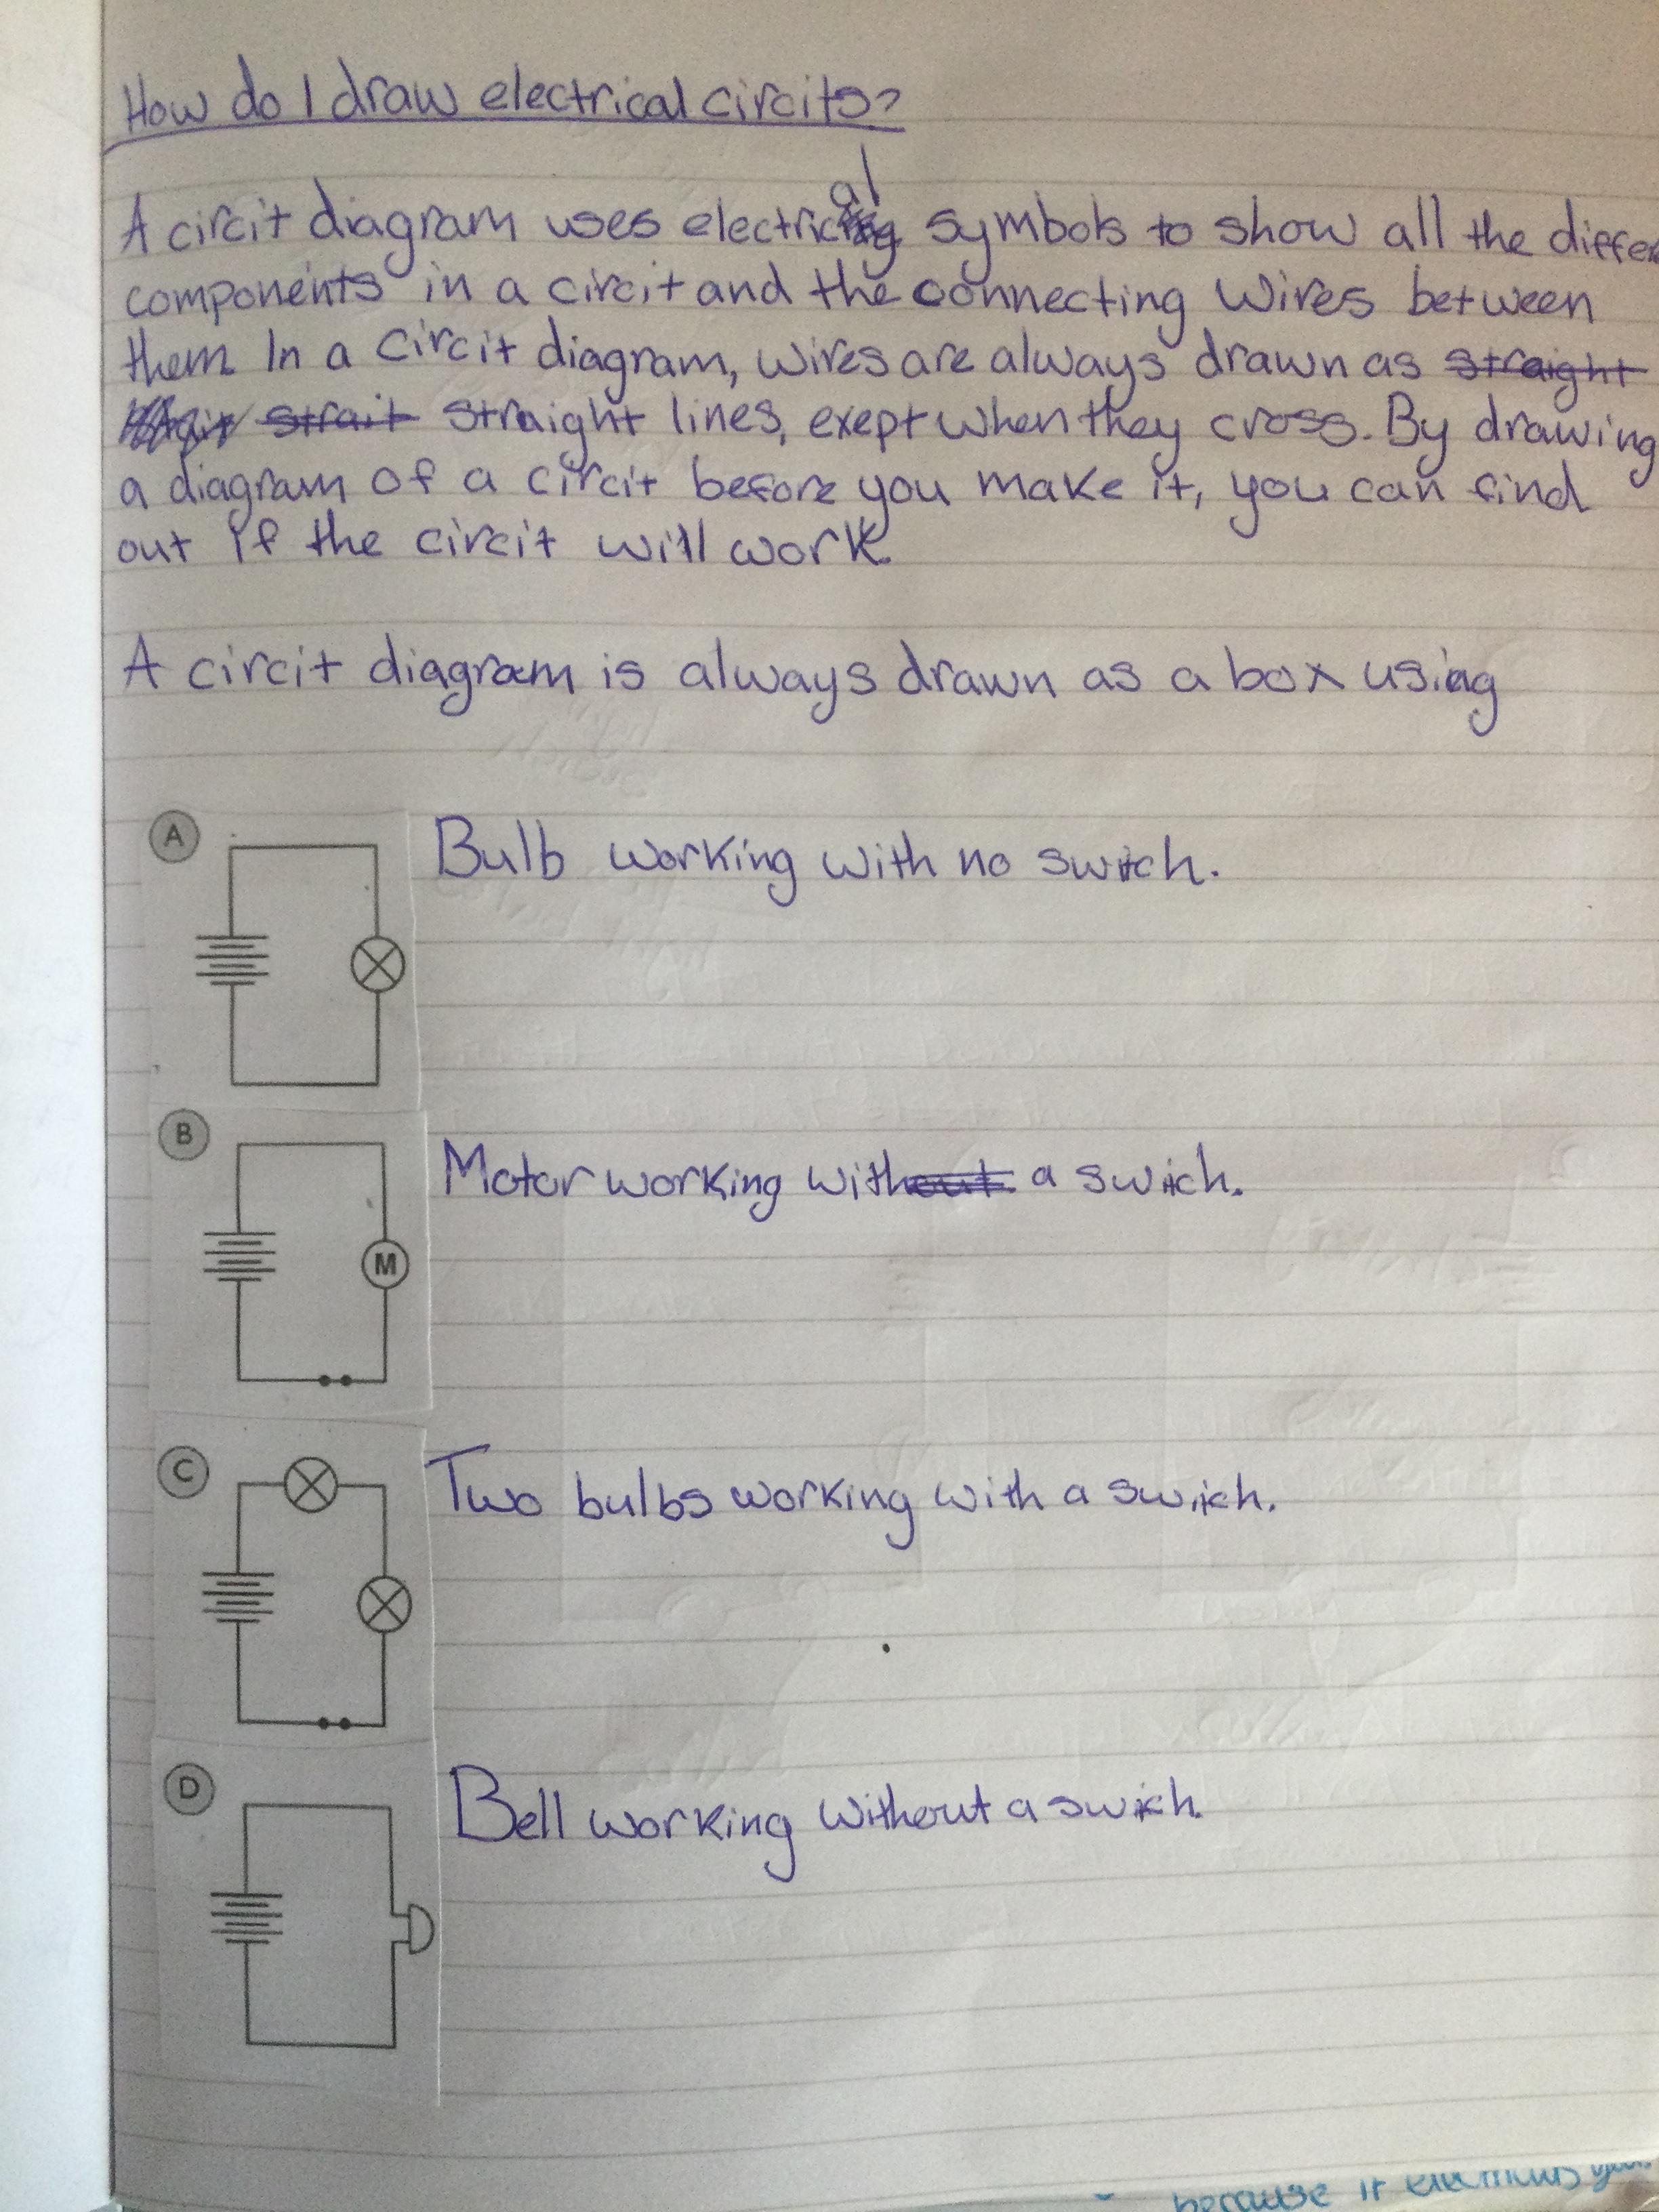 How do I draw electrical circits?
A circit diagram uses electrical symbols to show all the differ
components in a circit and the connecting wires between
them. In a circit diagram, wires are always drawn as straight
strait straight lines, exept when they cross. By drawing
a diagram of a circit before you make it, you can find
out if the circit will work.
A circit diagram is always drawn as a box using
A
Bulb working with no switch.
B
Motor working without a swich.
M
C
Two bulbs working with a swich.
D
Bell working without a swich.
because it